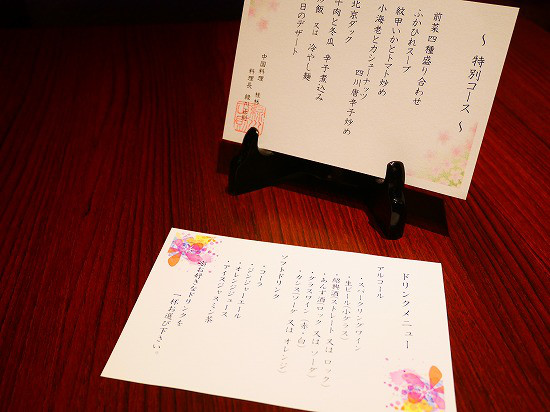 ～ 特別コース ～
前菜四種盛り合わせ
ふかひれスープ
紋甲いかとトマト炒め
小海老とカシューナッツ
四川唐辛子炒め
北京ダック
牛肉と冬瓜 辛子煮込み
飯 又は 冷やし麺
日のデザート
中国料理
料理長
ドリンクメニュー
アルコール
・スパークリングワイン
・生ビール(小グラス)
・紹興酒(ストレート 又は ロック)
・あんず酒(ロック 又は ソーダ)
・グラスワイン(赤・白)
・カシス(ソーダ 又は オレンジ)
ソフトドリンク
・コーラ
・ジンジャーエール
・オレンジジュース
・アイスジャスミン茶
お好きなドリンクを
一杯お選び下さい。